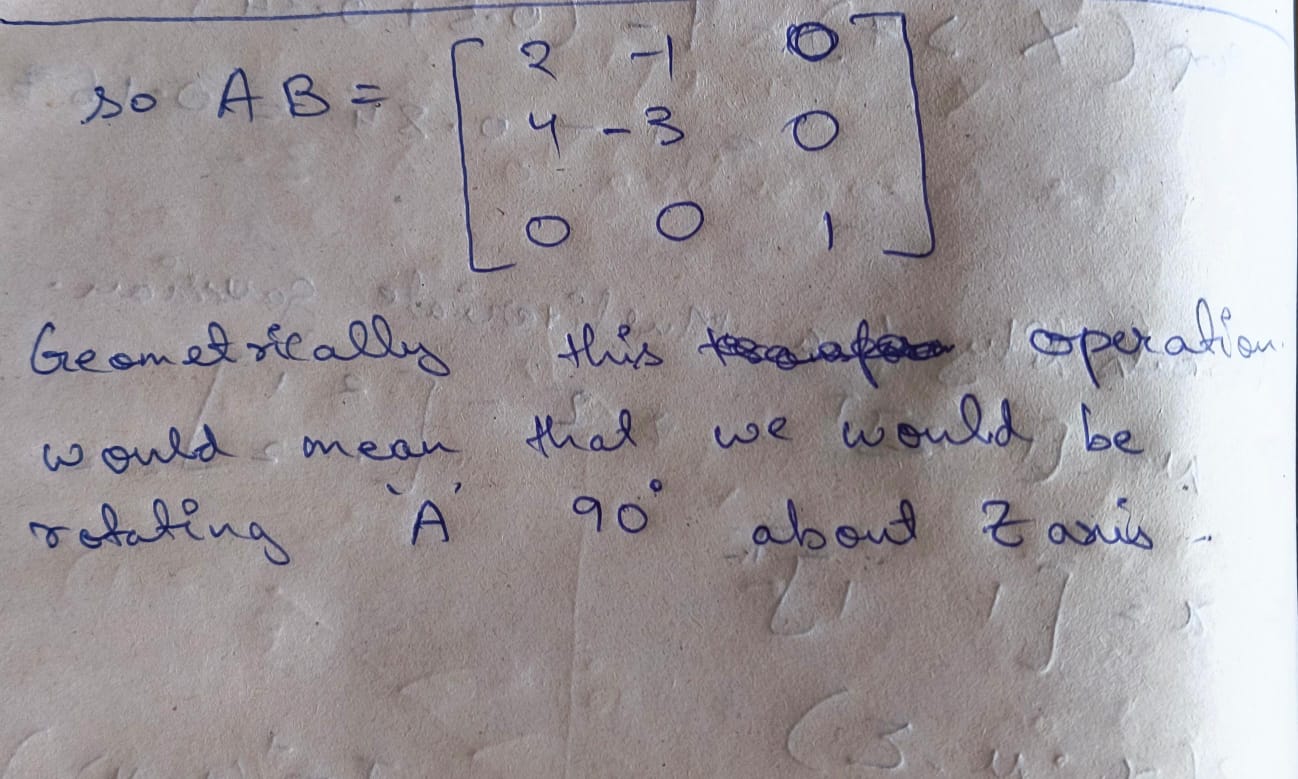 so AB = [ 2 -1 0
4 -3 0
0 0 1 ]
Geometrically this operation
would mean that we would be
rotating 'A' 90° about Z axis.